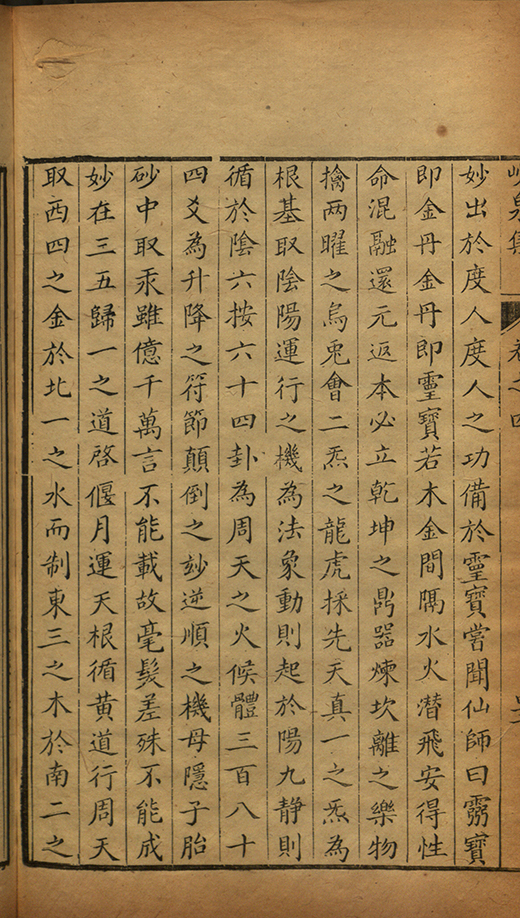 峴泉集
卷之四
妙出於度人度人之功備於靈寶嘗聞仙師曰靈寶
即金丹金丹即靈寶若木金間隔水火潛飛安得性
命混融還元返本必立乾坤之鼎器煉坎離之藥物
擒兩曜之烏兎會二炁之龍虎採先天真一之炁為
根基取陰陽運行之機為法象動則起於陽九静則
循於陰六按六十四卦為周天之火候體三百八十
四爻為升降之符節顛倒之妙逆順之機母隱子胎
砂中取汞雖億千萬言不能載故毫髮差殊不能成
妙在三五歸一之道啓偃月運天根循黄道行周天
取西四之金於北一之水而制東三之木於南二之